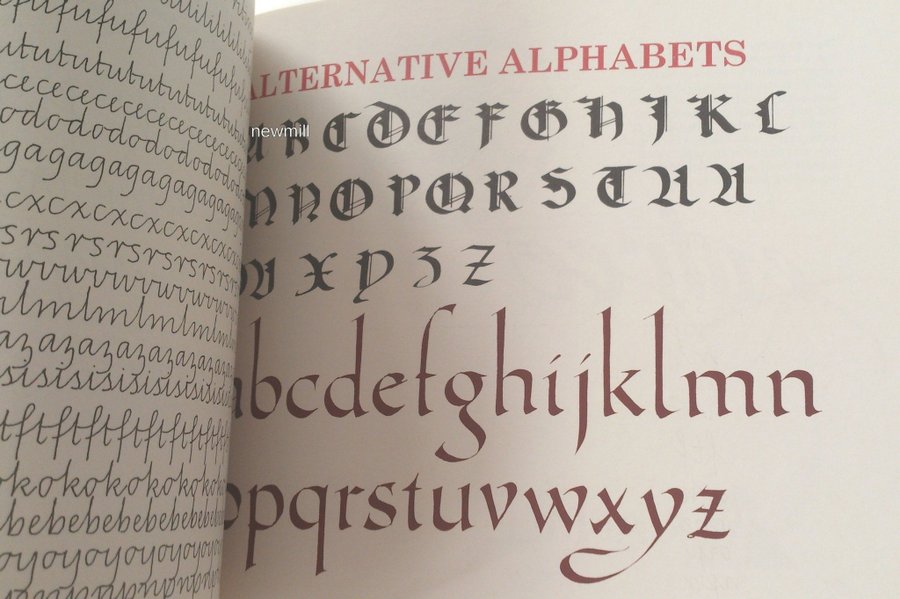 fufufufufufufufu
utututututututut
cecececececececece
odododododododo
gagagagagagagaga
cxcxcxcxcxcxcx
srsrsrsrsrsrsrsr
wvwvwvwvwvwvwv
lmlmlmlmlmlm
azazazazazazaz
sisisisisisisisisi
tftftftftftftftf
okokokokokokoko
bebebebebebebebe
oyoyoyoyoyoyoyo
ALTERNATIVE ALPHABETS
newmill
A B C D E F G H I K L
M N O P Q R S T U U
W X Y Z Z
abcdefghijklmn
opqrstuvwxyz